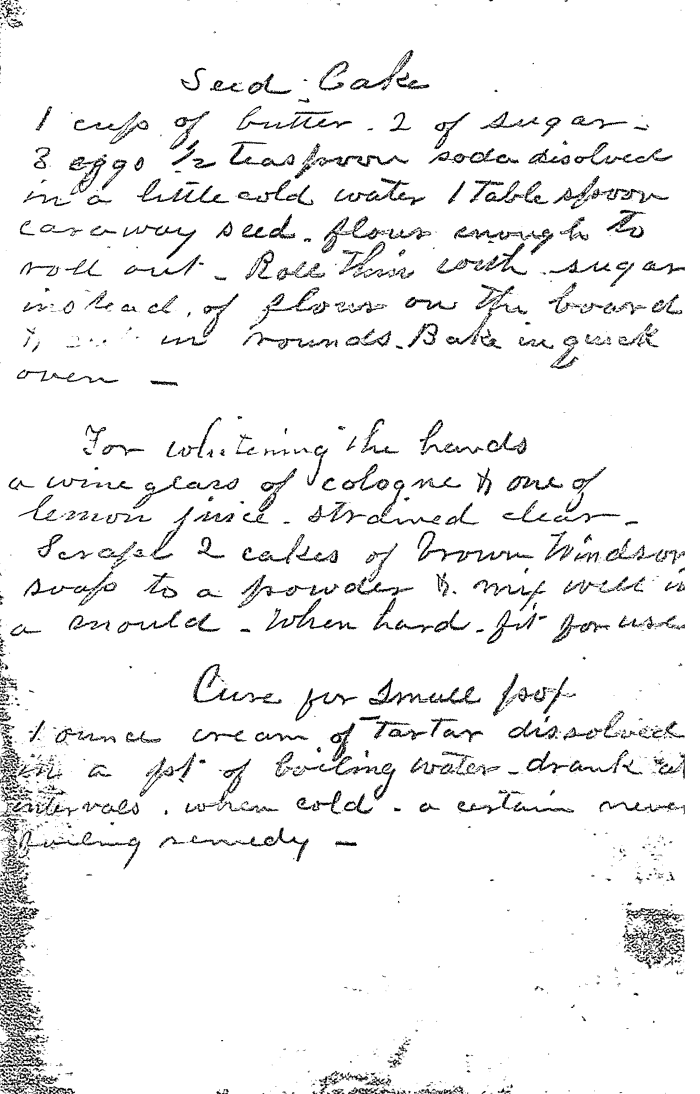 Seed Cake
1 cup of butter. 2 of sugar.
3 eggs 1/2 teaspoon soda disolved
in a little cold water 1 Table spoon
caraway seed. flour enough to
roll out - Roll thin with sugar
instead of flour on the board
& in rounds. Bake in quick
oven -
For whitening the hands
a wine glass of cologne & one of
lemon juice. strained clear -
Scrape 2 cakes of brown Windsor
soap to a powder & mix well in
a mould - When hard. fit for use
Cure for Small pox
1 ounce cream of Tartar dissolved
in a pt of boiling water - drank at
intervals. when cold. a certain never
failing remedy -